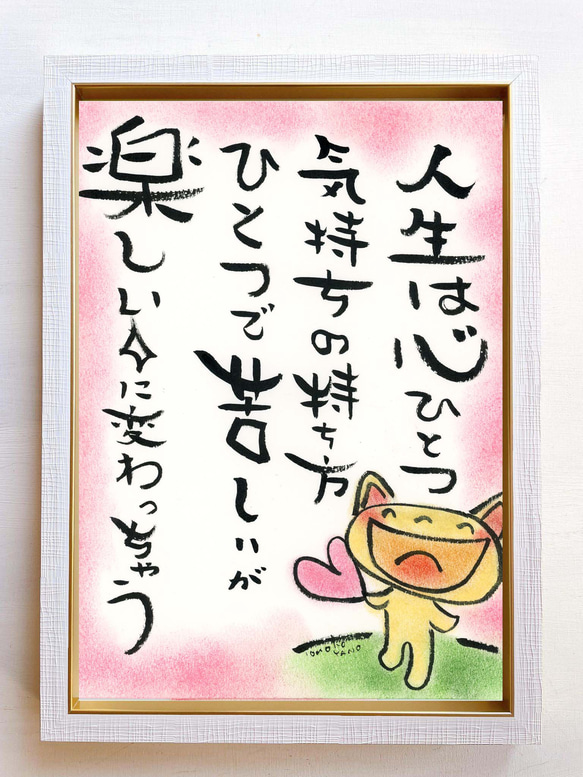 人生は心ひとつ
気持ちの持ち方
ひとつで苦しいが
楽しい今に変わっちゃう
YANO